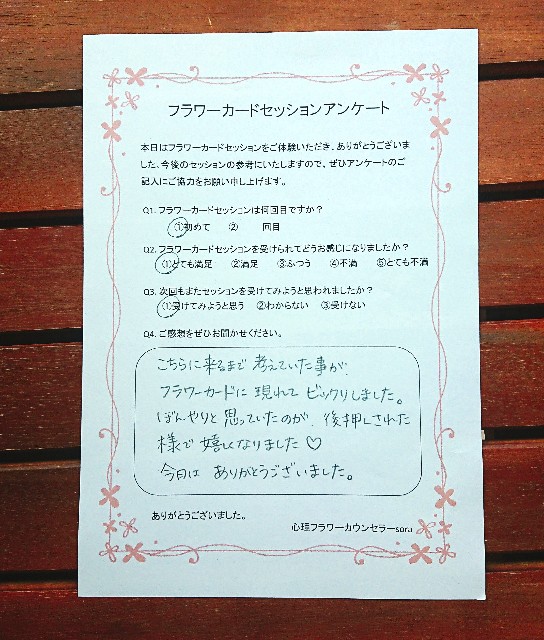 フラワーカードセッションアンケート
本日はフラワーカードセッションをご体験いただき、ありがとうございま
した。今後のセッションの参考にいたしますので、ぜひアンケートのご
記入にご協力をお願い申し上げます。
Q1. フラワーカードセッションは何回目ですか？
①初めて ② 回目
Q2. フラワーカードセッションを受けられてどうお感じになりましたか？
①とても満足 ②満足 ③ふつう ④不満 ⑤とても不満
Q3. 次回もまたセッションを受けてみようと思われましたか？
①受けてみようと思う ②わからない ③受けない
Q4. ご感想をぜひお聞かせください。
こちらに来るまで 考えていた事が、
フラワーカードに 現れて ビックリしました。
ぼんやりと 思っていたのが、後押しされた
様で 嬉しくなりました♡
今日は ありがとうございました。
ありがとうございました。
心理フラワーカウンセラーsora